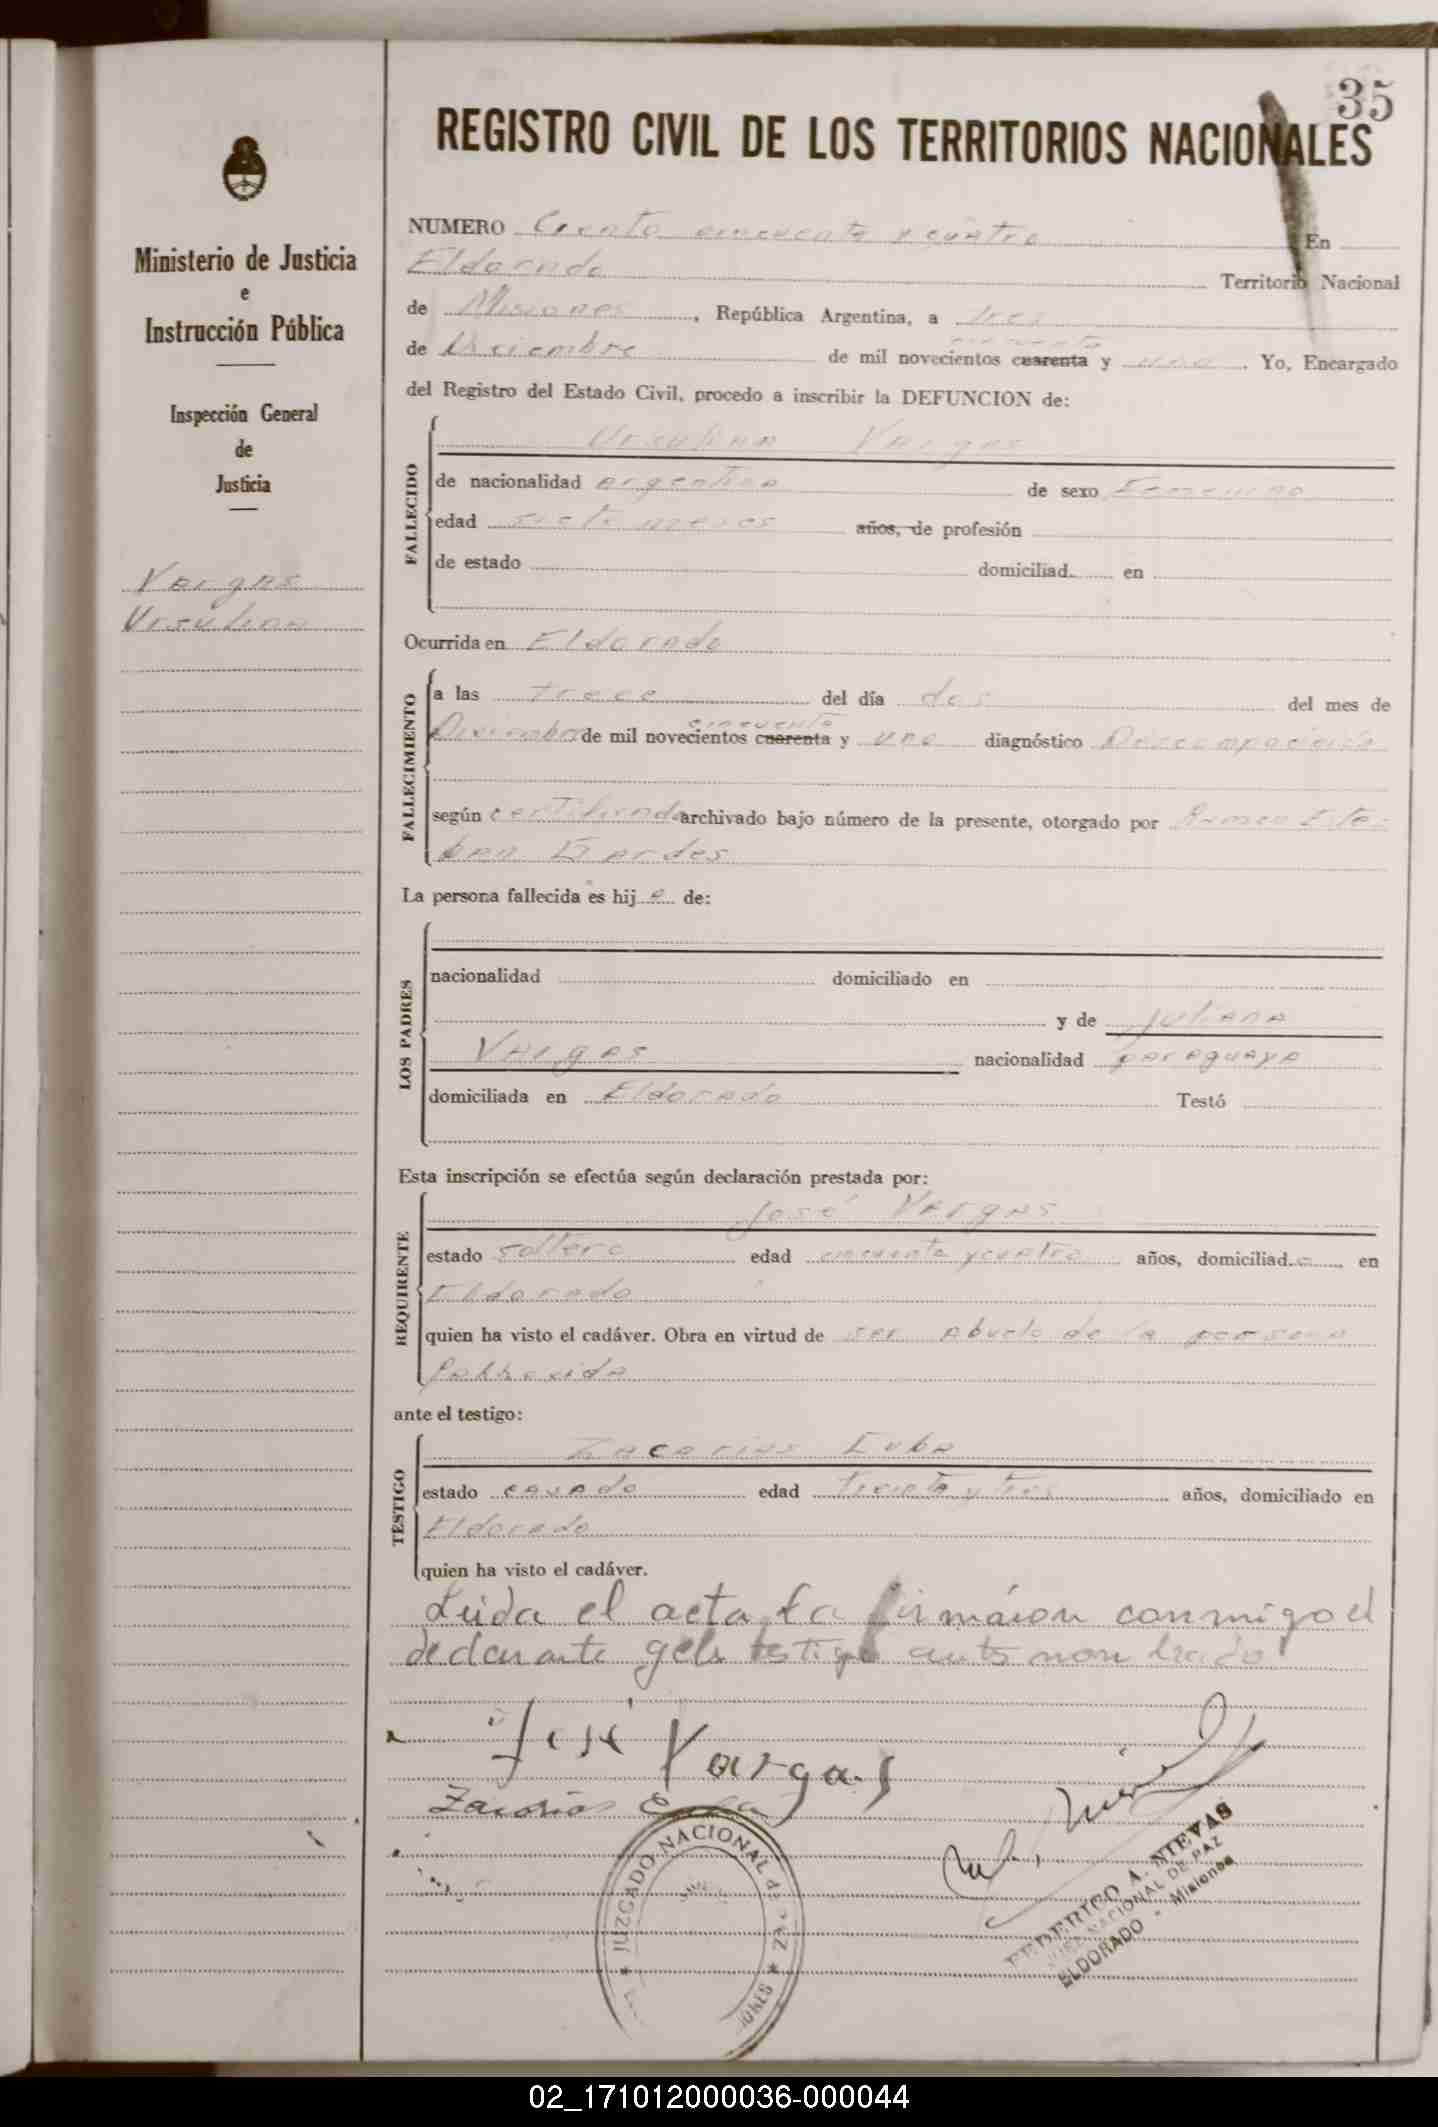 35
REGISTRO CIVIL DE LOS TERRITORIOS NACIONALES
Ministerio de Justicia
e
Instrucción Pública
Inspección General
de
Justicia
Vargas
Ursulina
NUMERO Ciento cincuenta y cuatro En
Eldorado Territorio Nacional
de Misiones, República Argentina, a tres
cincuenta
de Diciembre de mil novecientos cuarenta y uno. Yo, Encargado
del Registro del Estado Civil, procedo a inscribir la DEFUNCION de:
FALLECIDO
Ursulina Vargas
de nacionalidad argentina de sexo Femenino
edad siete meses años, de profesión
de estado domiciliad en
Ocurrida en Eldorado
FALLECIMIENTO
a las trece del día dos del mes de
cincuenta
Diciembre de mil novecientos cuarenta y uno diagnóstico
según certificado archivado bajo número de la presente, otorgado por
La persona fallecida es hija de:
LOS PADRES
nacionalidad domiciliado en
y de Juliana
Vargas nacionalidad paraguaya
domiciliada en Eldorado Testó
Esta inscripción se efectúa según declaración prestada por:
REQUIRENTE
José Vargas
estado soltero edad cincuenta y cuatro años, domiciliado en
Eldorado
quien ha visto el cadáver. Obra en virtud de ser abuelo de la persona
fallecida
ante el testigo:
TESTIGO
Zacarías Cuba
estado casado edad treinta y tres años, domiciliado en
Eldorado
quien ha visto el cadáver.
Leida el acta la firmaron conmigo el
declarante y el testigo antes nombrado
José Vargas
Zacarias
JUZGADO NACIONAL de PAZ
FEDERICO A. NIEVAS
JUEZ NACIONAL DE PAZ
ELDORADO - Misiones
02_171012000036-000044